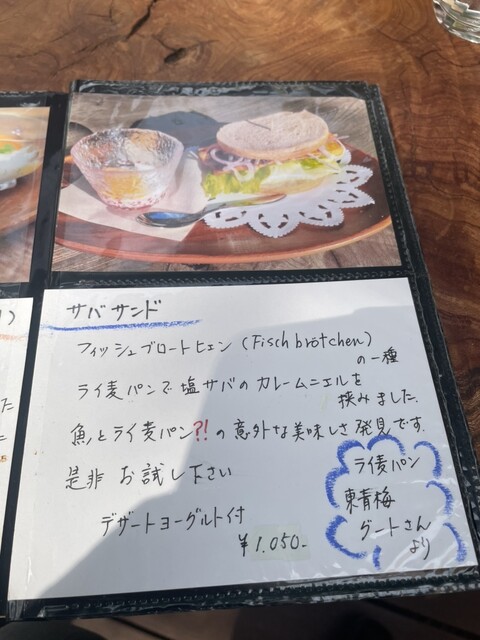 サバサンド
フィッシュブロートヒェン (Fisch brötchen)
の一種
ライ麦パンで塩サバのカレームニエルを
挟みました.
魚とライ麦パン⁈の意外な美味しさ発見です.
是非 お試し下さい
デザートヨーグルト付
¥1.050-
ライ麦パン
東青梅
グートさん
より